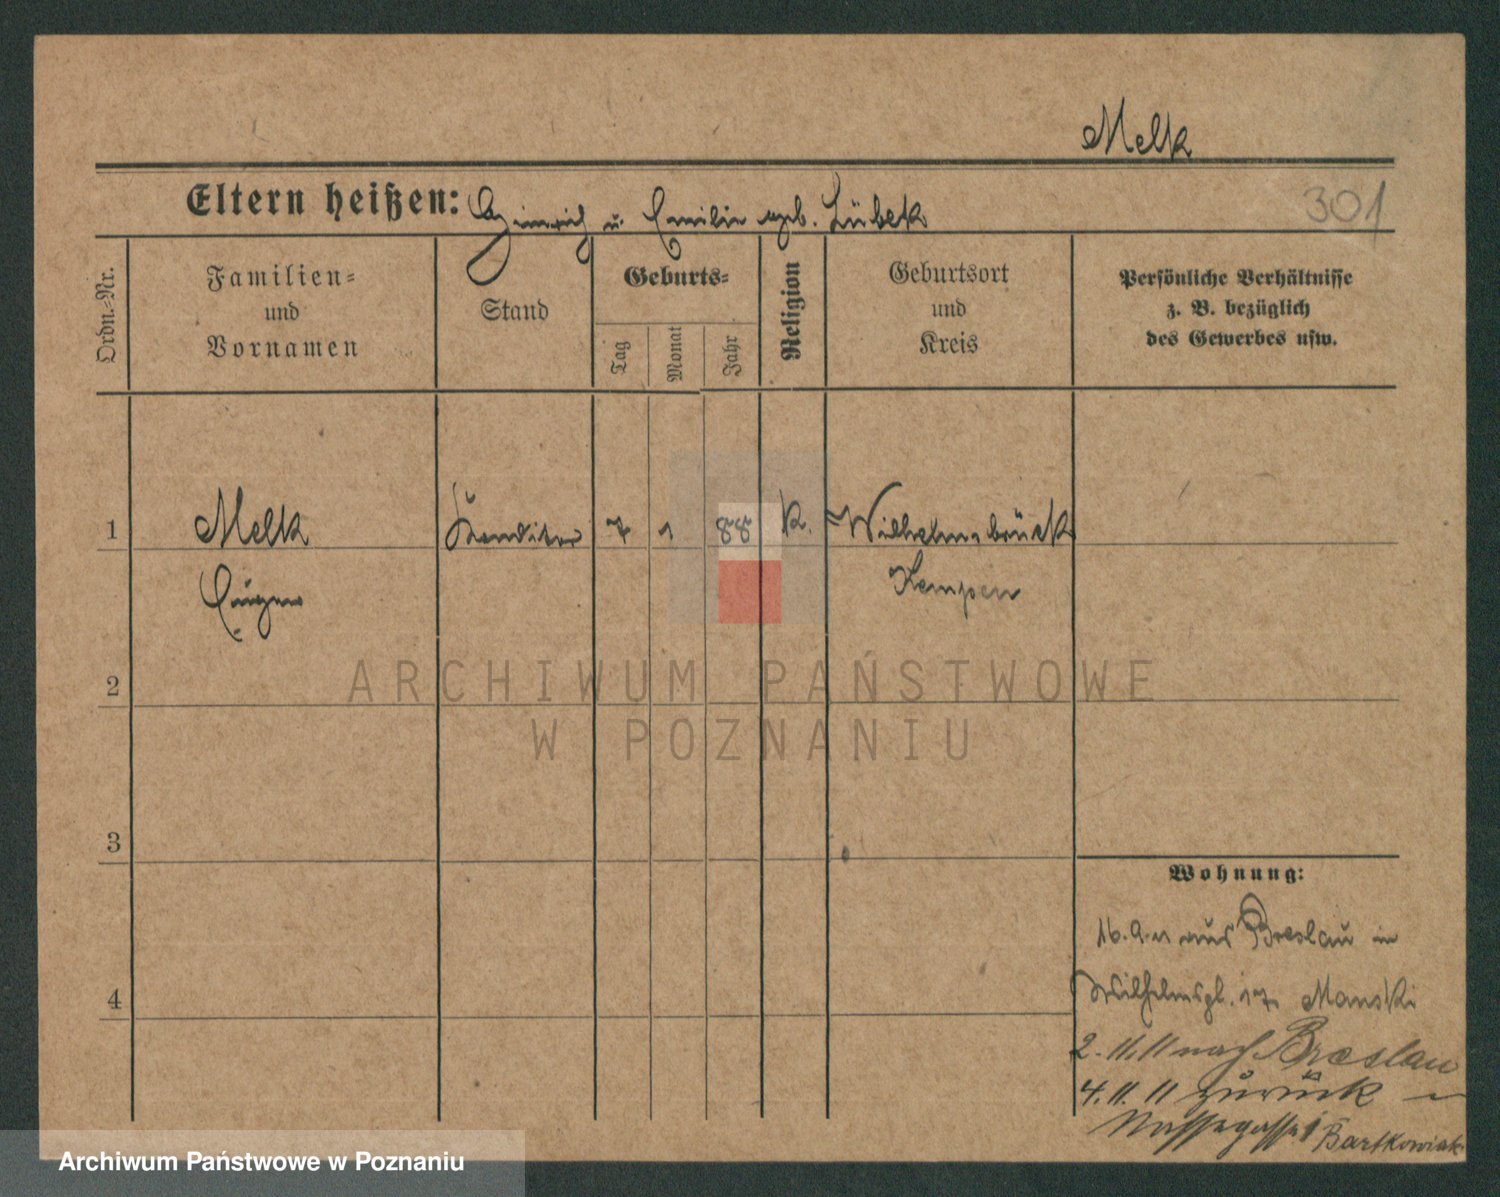 Melk
Eltern heißen: Heinrich u. Emilie geb. Lübek
301
Ordn.-Nr.
Familien-
und
Vornamen
Stand
Geburts-
Tag
Monat
Jahr
Religion
Geburtsort
und
Kreis
Persönliche Verhältnisse
z. B. bezüglich
des Gewerbes usw.
1
Melk
Eugen
Konditor
7
1
88
K.
Wilhelmsbrück
Kempen
2
ARCHIWUM PAŃSTWOWE
W POZNANIU
3
4
Wohnung:
16.9.11 aus Breslau in
Wilhelmspl. 17 Manski
2.11.11 nach Breslau
4.11.11 zurück
Nassegasse 1 Bartkowiak
Archiwum Państwowe w Poznaniu